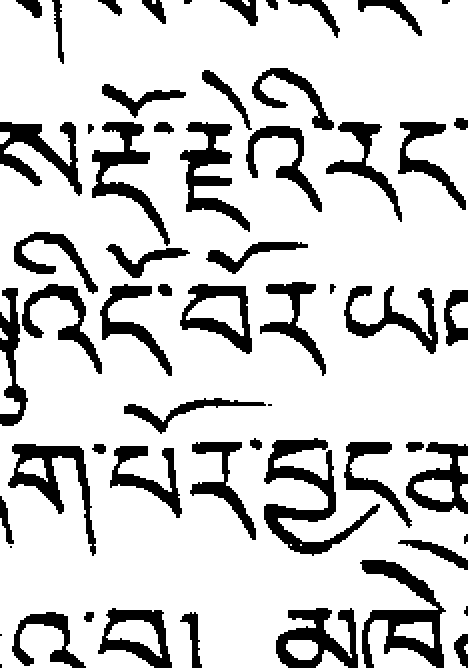 ས་རྡོ་རྗེའི་རང་
འི་ངོ་བོར་ཡ
ག་པོར་བྱང་ཆ
འ་བ། མཁེ